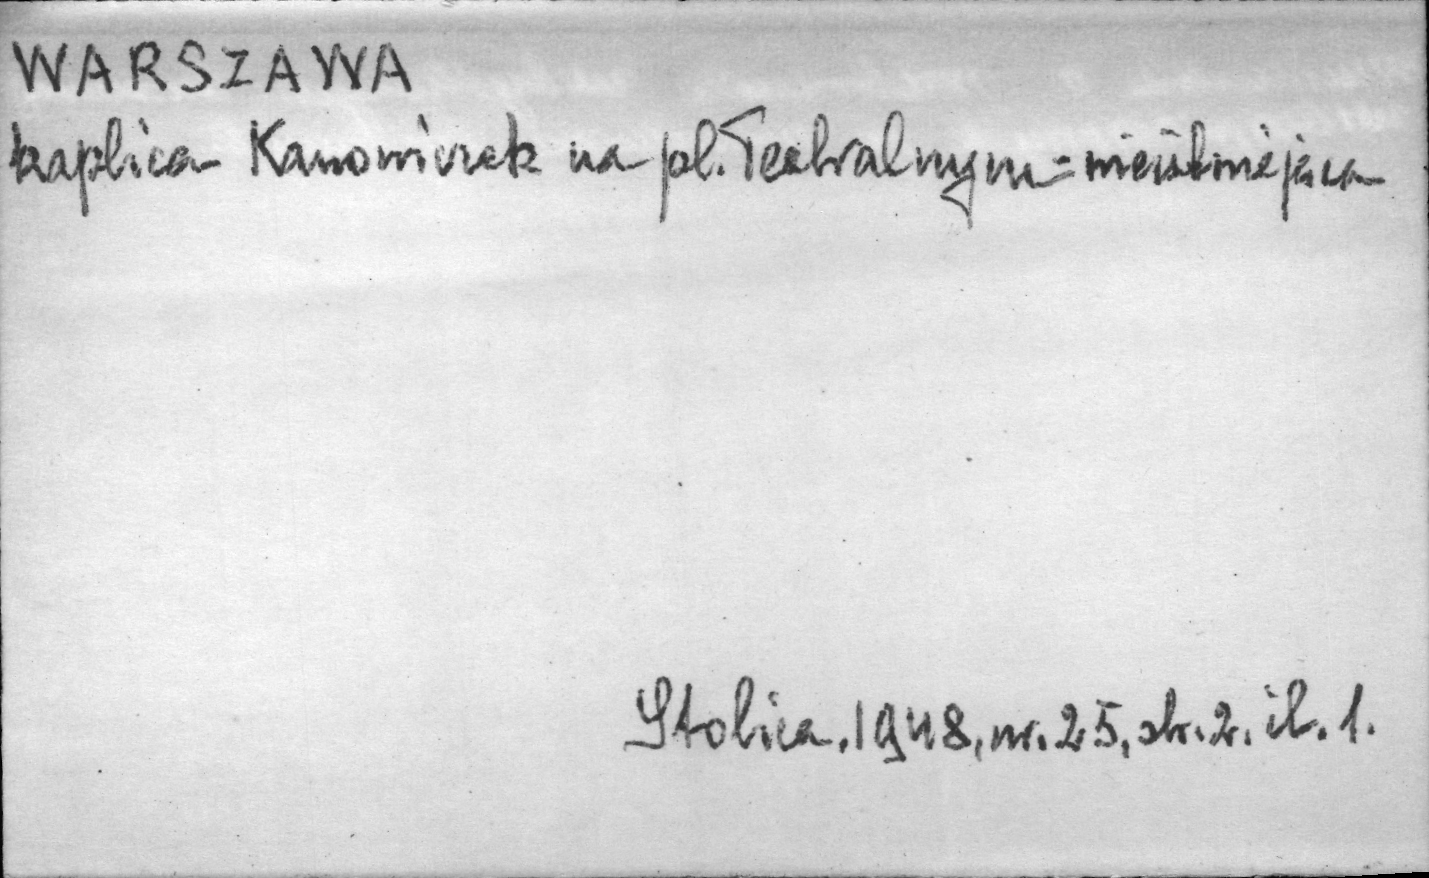 WARSZAWA
kaplica Kanoniczek na pl. Teatralnym = nieistniejąca
Stolica. 1948, nr. 25, str. 2. il. 1.